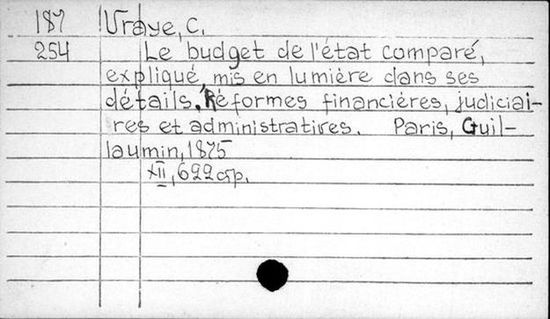 187 Vraye, C.
254 Le budget de l'état comparé,
expliqué, mis en lumière dans ses
détails. Réformes financières, judiciai-
res et administratives. Paris, Guil-
laumin, 1875
XII, 622 стр.